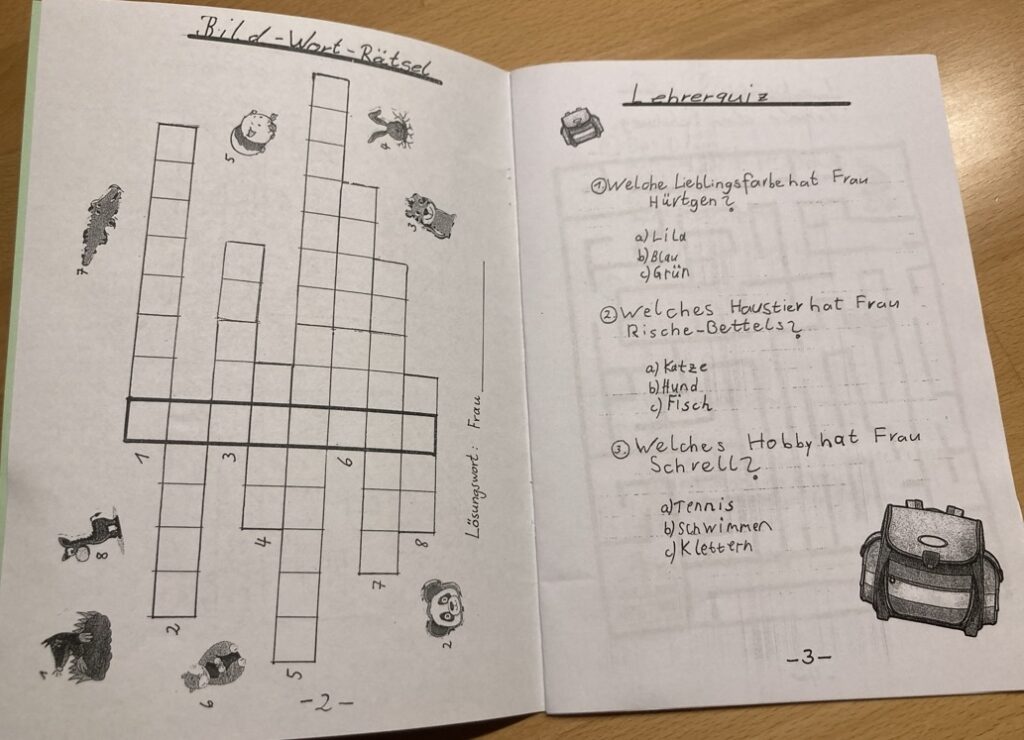 Bild-Wort-Rätsel
5
4
3
7
Lösungswort: Frau
1
3
6
4
8
7
2
5
8
1
6
2
-2-
Lehrerquiz
① Welche Lieblingsfarbe hat Frau
Hürtgen?
a) Lila
b) Blau
c) Grün
② Welches Haustier hat Frau
Rische-Bettels?
a) Katze
b) Hund
c) Fisch
③ Welches Hobby hat Frau
Schrell?
a) Tennis
b) Schwimmen
c) Klettern
-3-